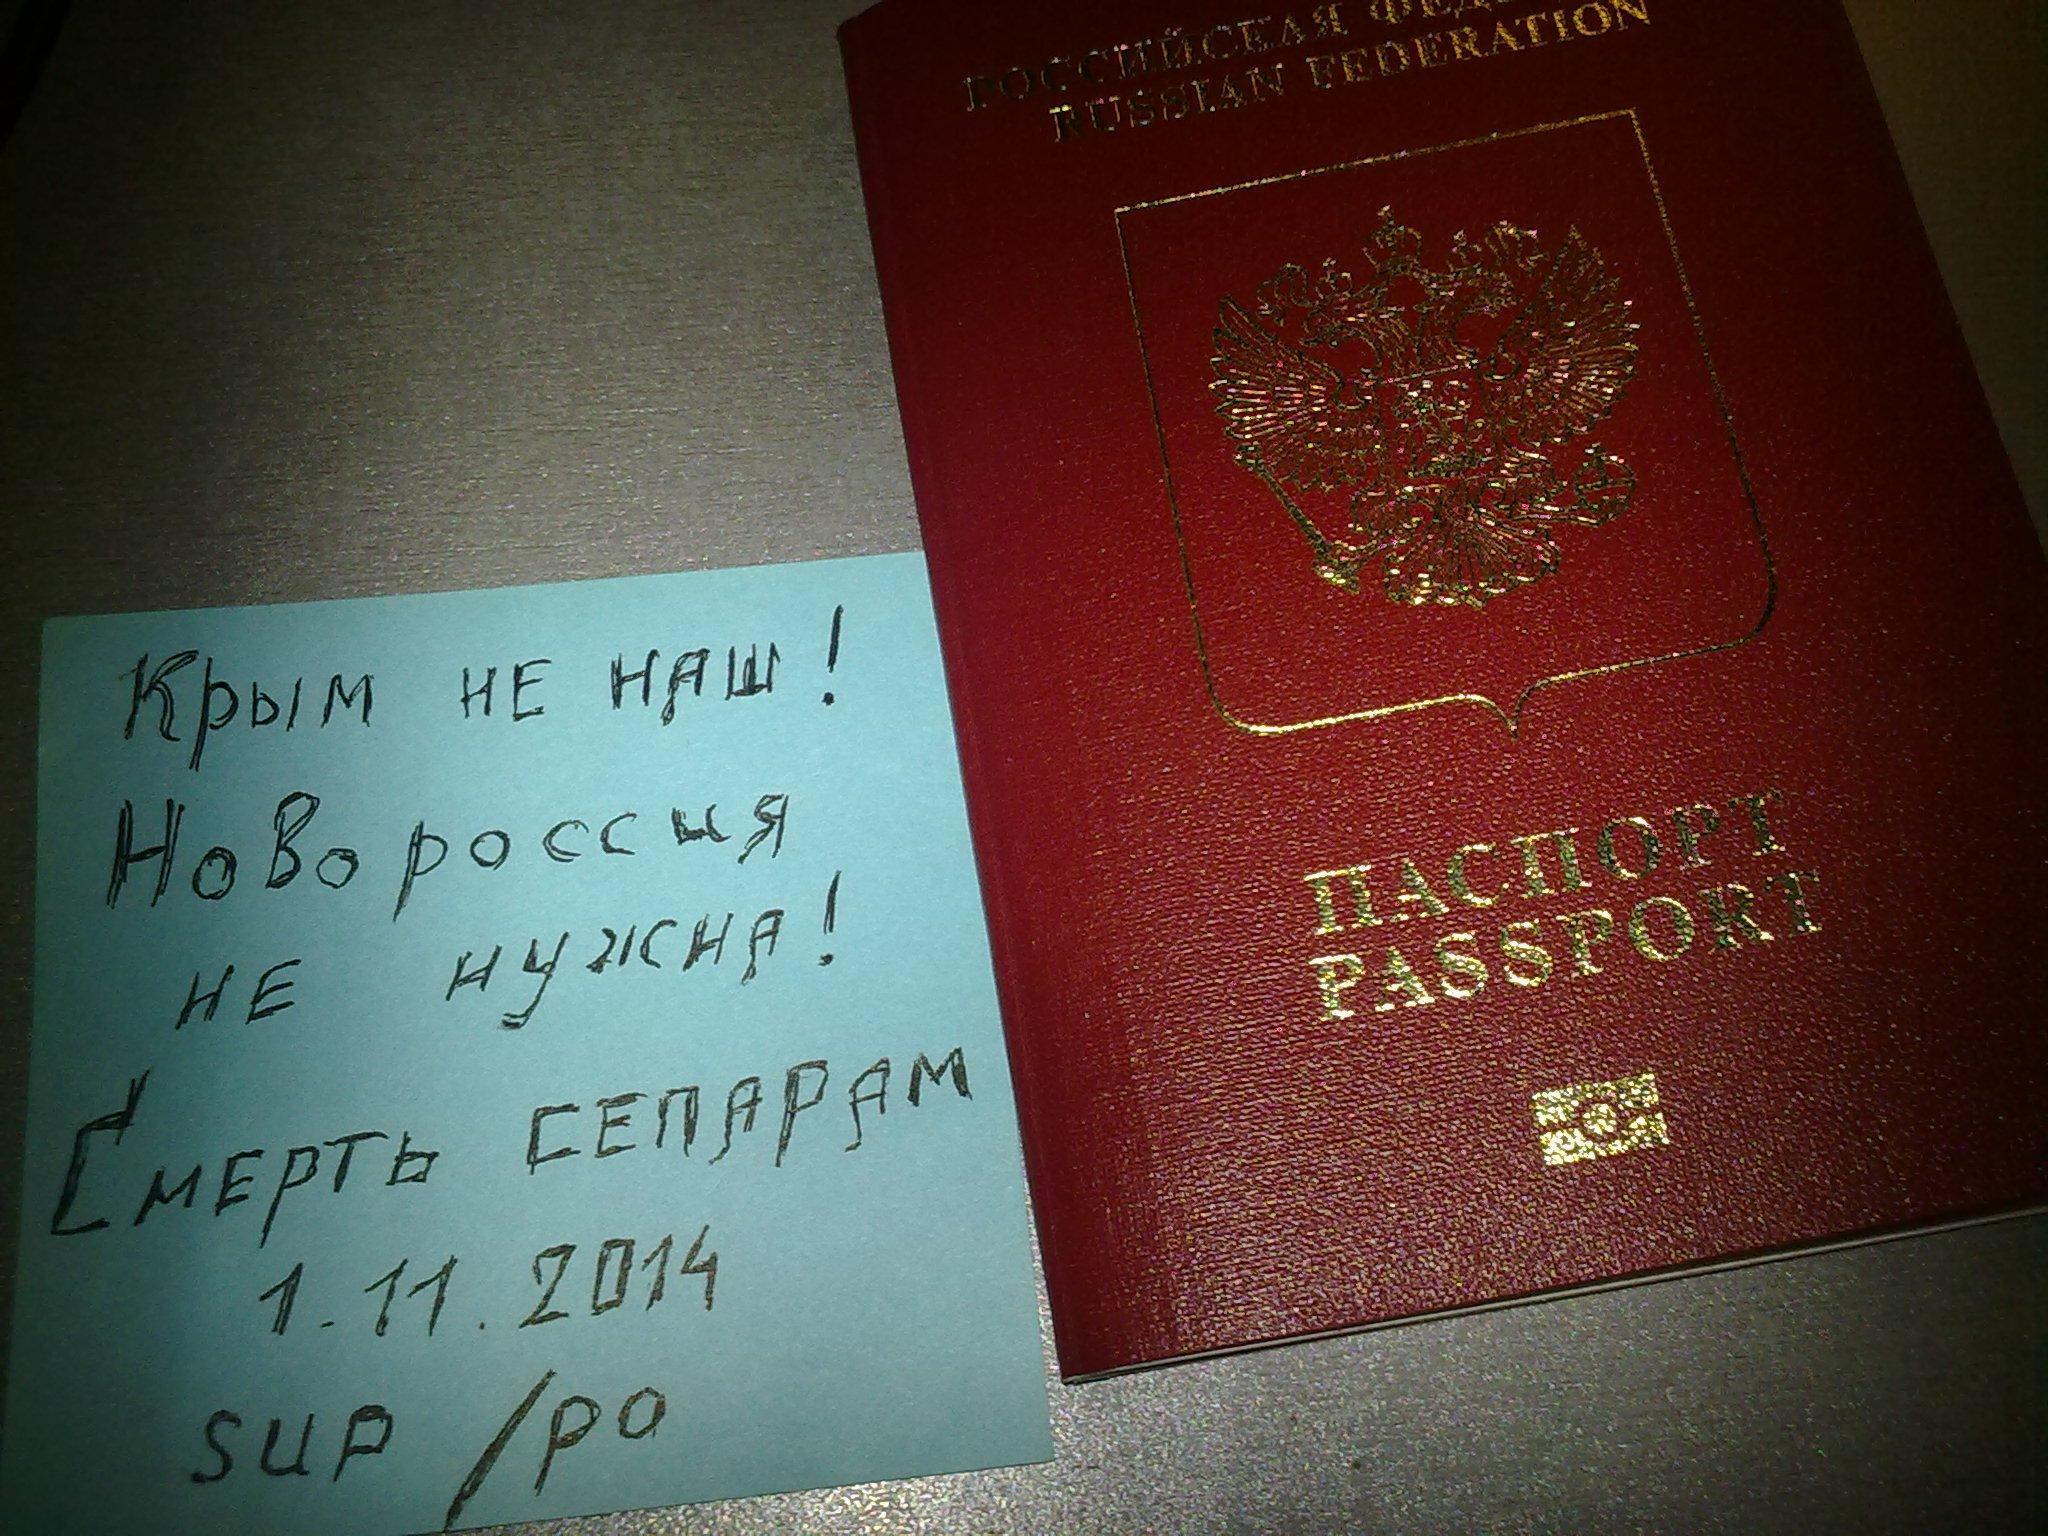 Крым не наш!
Новороссия
не нужна!
Смерть сепарам
1.11.2014
sup /po
РОССИЙСКАЯ
RUSSIAN FEDERATION
ПАСПОРТ
PASSPORT